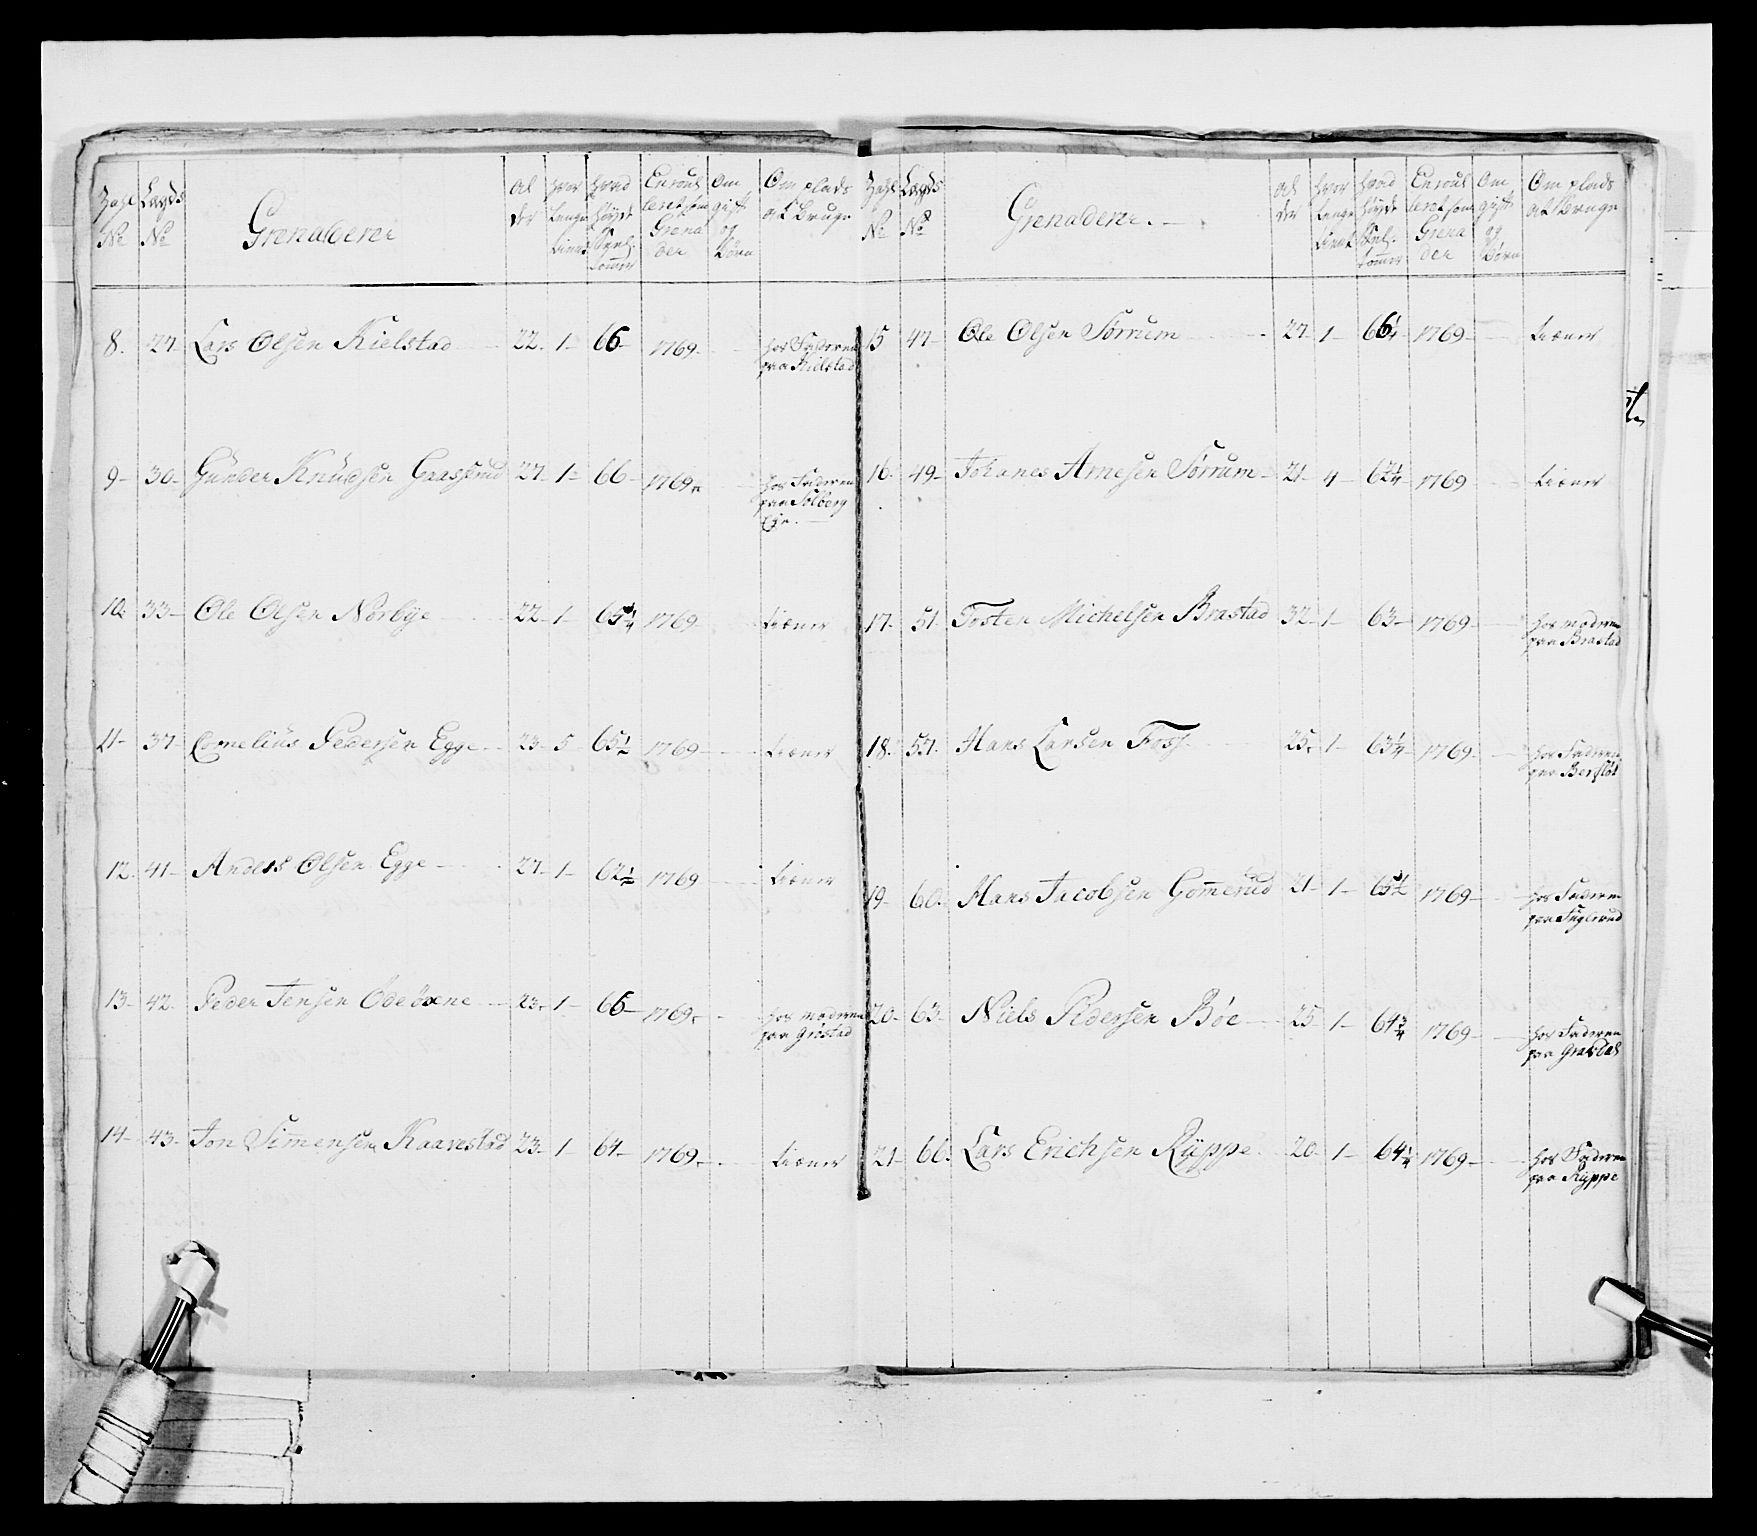 Lægds
No No
Grenaderer
Al der
hvor længe tient
hvad høyde
tommer
Grenader
Om gift og Børn
Om plads at bruge
8. 27 Lars Olsen Kielstad 22 1 66 1769 hos Faderen paa Kielstad
9 30 Gunder Knudsen Gaasserud 27 1 66 1769 hos Faderen paa Solberg Eje
10. 33 Ole Olsen Norbye 22 1 65 1/4 1769 tiener
11 37 Cornelius Pedersen Egge 23 5 65 1/2 1769 tiener
12. 41 Anders Olsen Egge 27 1 62 1/2 1769 tiener
13 42. Peder Jensen Ødeöxne 23 1 66 1769 hos moderen paa Gristad
14 43 Jon Simensen Kaarestad 23 1 64 1769 tiener
Lægds
No No
Grenaderer
Al der
hvor længe tient
hvad høyde
tommer
Grenader
Om gift og Børn
Om plads at bruge
15 47 Ole Olsen Sørrum 27 1 66 1/4 1769 tiener
16 49 Johanes Arnesen Sørrum 21 4 62 1/4 1769 tiener
17 51 Tosten Michelsen Brastad 32 1 63 1769 hos moderen paa Brastad
18. 57 Hans Larsen Foss 25 1 63 1/4 1769 hos Faderen paa Bersløt
19 60. Hans Jacobsen Gomerud 21 1 65 1/2 1769 hos Faderen paa Fuglerud
20 63 Niels Pedersen Bøe 25 1 64 3/4 1769 hos Faderen paa
21 66. Lars Erichsen Ryppe 20 1 64 1/4 1769 hos Faderen paa Ryppe